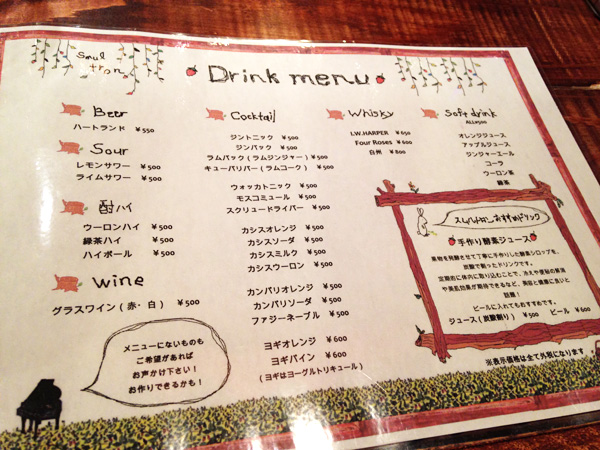 Drink menu
Beer
ハートランド ¥550
Sour
レモンサワー ¥500
ライムサワー ¥500
酎ハイ
ウーロンハイ ¥500
緑茶ハイ ¥500
ハイボール ¥500
Wine
グラスワイン (赤・白) ¥500
メニューにないものも
ご希望があれば
お声かけ下さい!
お作りできるかも!
Cocktail
ジントニック ¥500
ジンバック ¥500
ラムバック (ラムジンジャー) ¥500
キューバリバー (ラムコーク) ¥500
ウォッカトニック ¥500
モスコミュール ¥500
スクリュードライバー ¥500
カシスオレンジ ¥500
カシスソーダ ¥500
カシスミルク ¥500
カシスウーロン ¥500
カンパリオレンジ ¥500
カンパリソーダ ¥500
ファジーネーブル ¥500
ヨギオレンジ ¥600
ヨギパイン ¥600
(ヨギはヨーグルトリキュール)
Whisky
I.W.HARPER ¥650
Four Roses ¥600
白州 ¥800
Soft drink
ALL¥500
オレンジジュース
アップルジュース
ジンジャーエール
コーラ
ウーロン茶
緑茶
おすすめドリンク
手作り酵素ジュース
果物を発酵させて丁寧に手作りした酵素シロップを、
炭酸で割ったドリンクです。
定期的に体内に取り込むことで、冷えや便秘の解消
や美肌効果が期待できるなど、美容と健康に良いと
話題!
ビールに入れてもおすすめです。
ジュース (炭酸割り) ¥500 ビール ¥600
※表示価格は全て外税になります